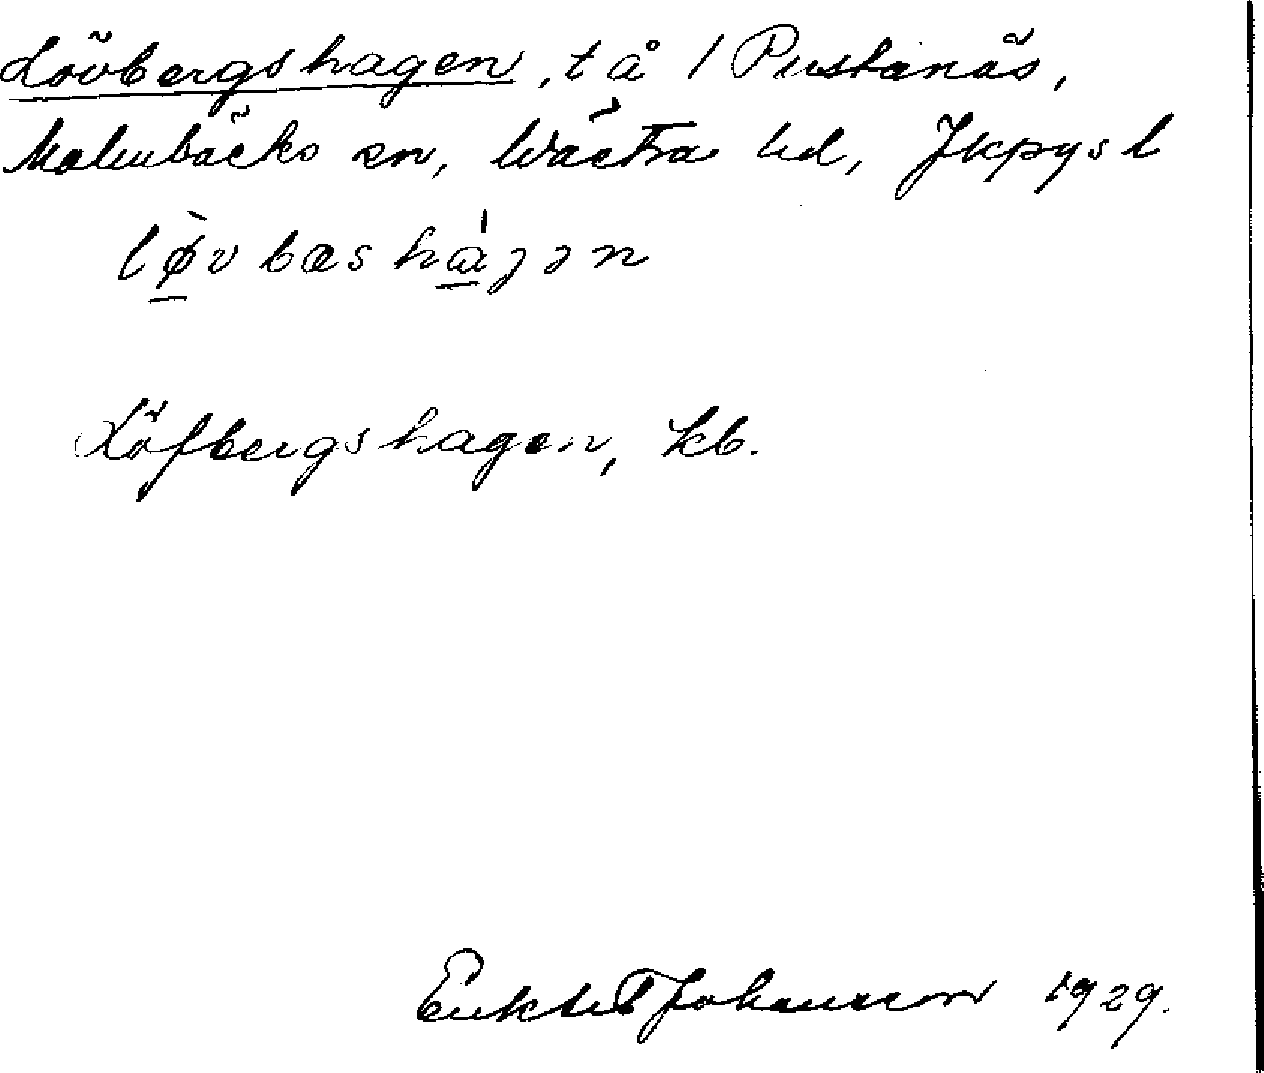 Lövbergshagen, t å / Pustanäs,
Malmbäcks sn, Västra hd, Jkpgs l
lø̀vbæshágən
Löfbergshagen, kb.
Johansson 1929.